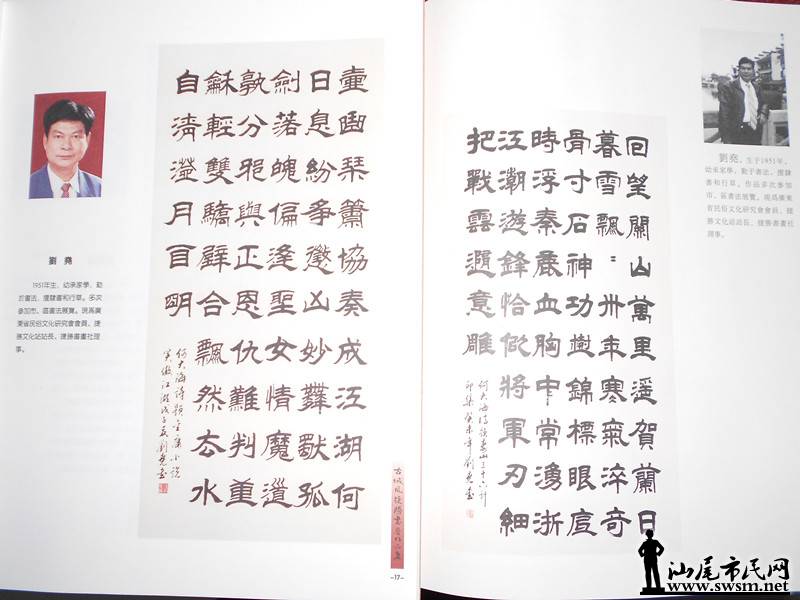 劉 堯
1951年生，幼承家學，勤
於書法，擅隸書和行草。多次
參加市、區書法展覽。現爲廣
東省民俗文化研究會會員，捷
勝文化站站長、捷勝書畫社理
事。
幽琹簫協奏成江湖何
日息紛爭懲凶妙舞獨孤
劍落魄偏逢聖女情魔道
孰分邪與正恩仇難判重
穌輕雙驕壁合飄然去水
自清瀅月自明
何大海詩題金庸小說
笑傲江湖戊子夏劉堯書
-17-
劉堯，生于1951年，
幼承家學，勤于書法，擅隸
書和行草。作品多次參加
市、區書法展覽。現爲廣東
省民俗文化研究會會員，捷
勝文化站站長、捷勝書畫社
理事。
回望關山萬里遥賀蘭日
暮雪飄：卅年寒氣淬奇
骨寸石神功樹錦標眼底
時浮秦嶽血胸中常湧浙
江潮遊鋒恰似將軍刃細
把戰雲意雕
印集癸未年劉堯書
汕尾市民网
www.swsm.net